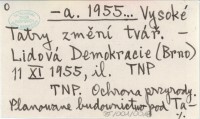 0
- a. 1955... Vysoké
Tatry změní tvář. -
Lidová Demokracie (Brno)
11 XI 1955, il. TNP
TNP. Ochrona przyrody.
Planowane budownictwo pod Ta-